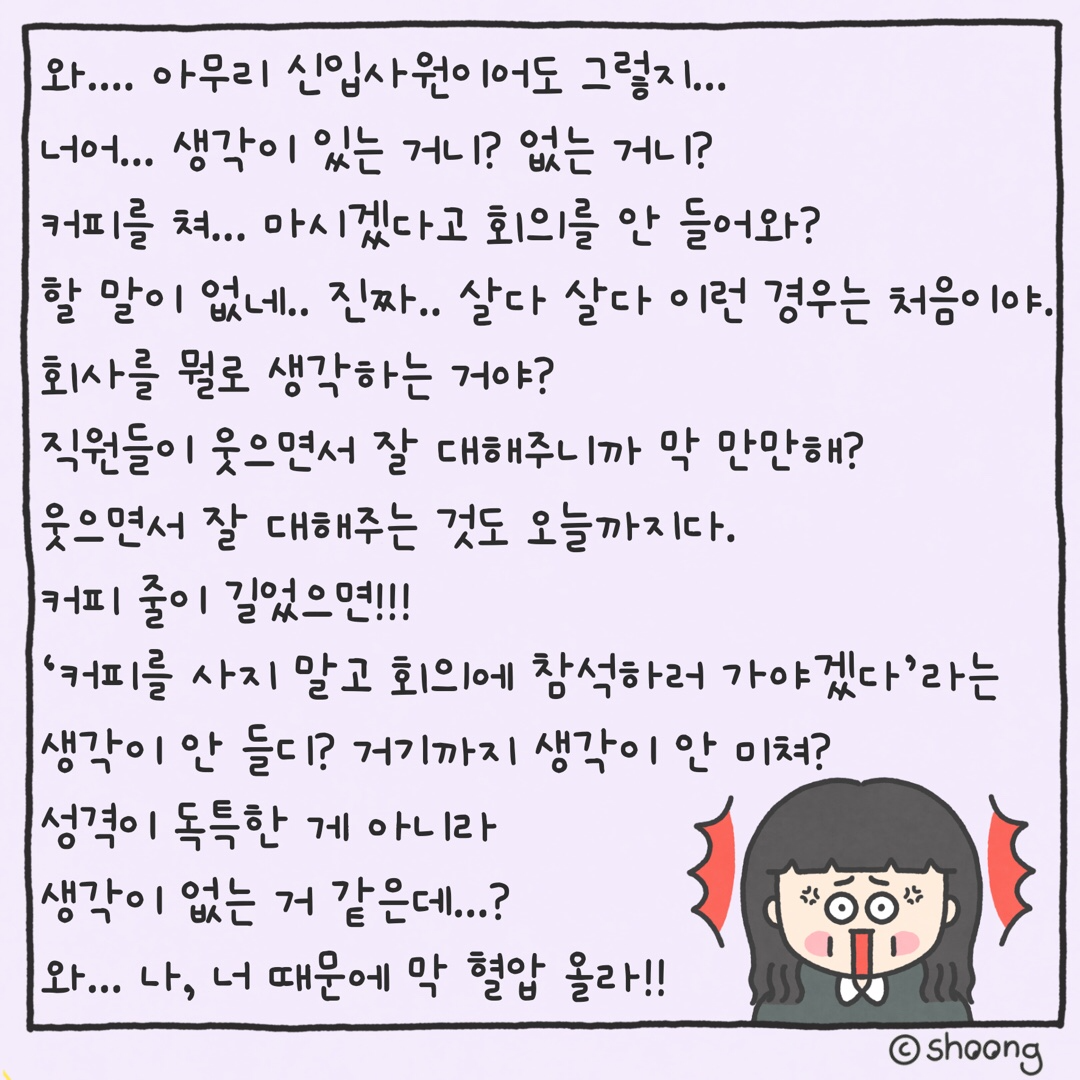 와.... 아무리 신입사원이어도 그렇지...
너어... 생각이 있는 거니? 없는 거니?
커피를 쳐... 마시겠다고 회의를 안 들어와?
할 말이 없네.. 진짜.. 살다 살다 이런 경우는 처음이야.
회사를 뭘로 생각하는 거야?
직원들이 웃으면서 잘 대해주니까 막 만만해?
웃으면서 잘 대해주는 것도 오늘까지다.
커피 줄이 길었으면!!!
‘커피를 사지 말고 회의에 참석하러 가야겠다’라는
생각이 안 들디? 거기까지 생각이 안 미쳐?
성격이 독특한 게 아니라
생각이 없는 거 같은데...?
와... 나, 너 때문에 막 혈압 올라!!
ⓒshoong